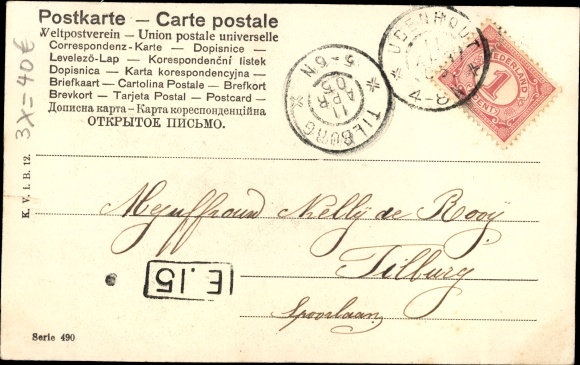 Postkarte — Carte postale
Weltpostverein — Union postale universelle
Correspondenz-Karte — Dopisnice —
Levelező-Lap — Korespondenční listek
Dopisnica — Karta korespondencyjna —
Briefkaart — Cartolina Postale — Brefkort
Brevkort — Tarjeta Postal — Postcard —
Дописна карта — Карта кореспонденцiйна
ОТКРЫТОЕ ПИСЬМО.
3x=40€
UDENHOUT
4-8
TILBURG
11 APR 05
5-6N
NEDERLAND
1
CENT
K. V. i. B. 12.
Mejuffrouw Nelly de Rooy
Tilburg
Spoorlaan
E.15
Serie 490